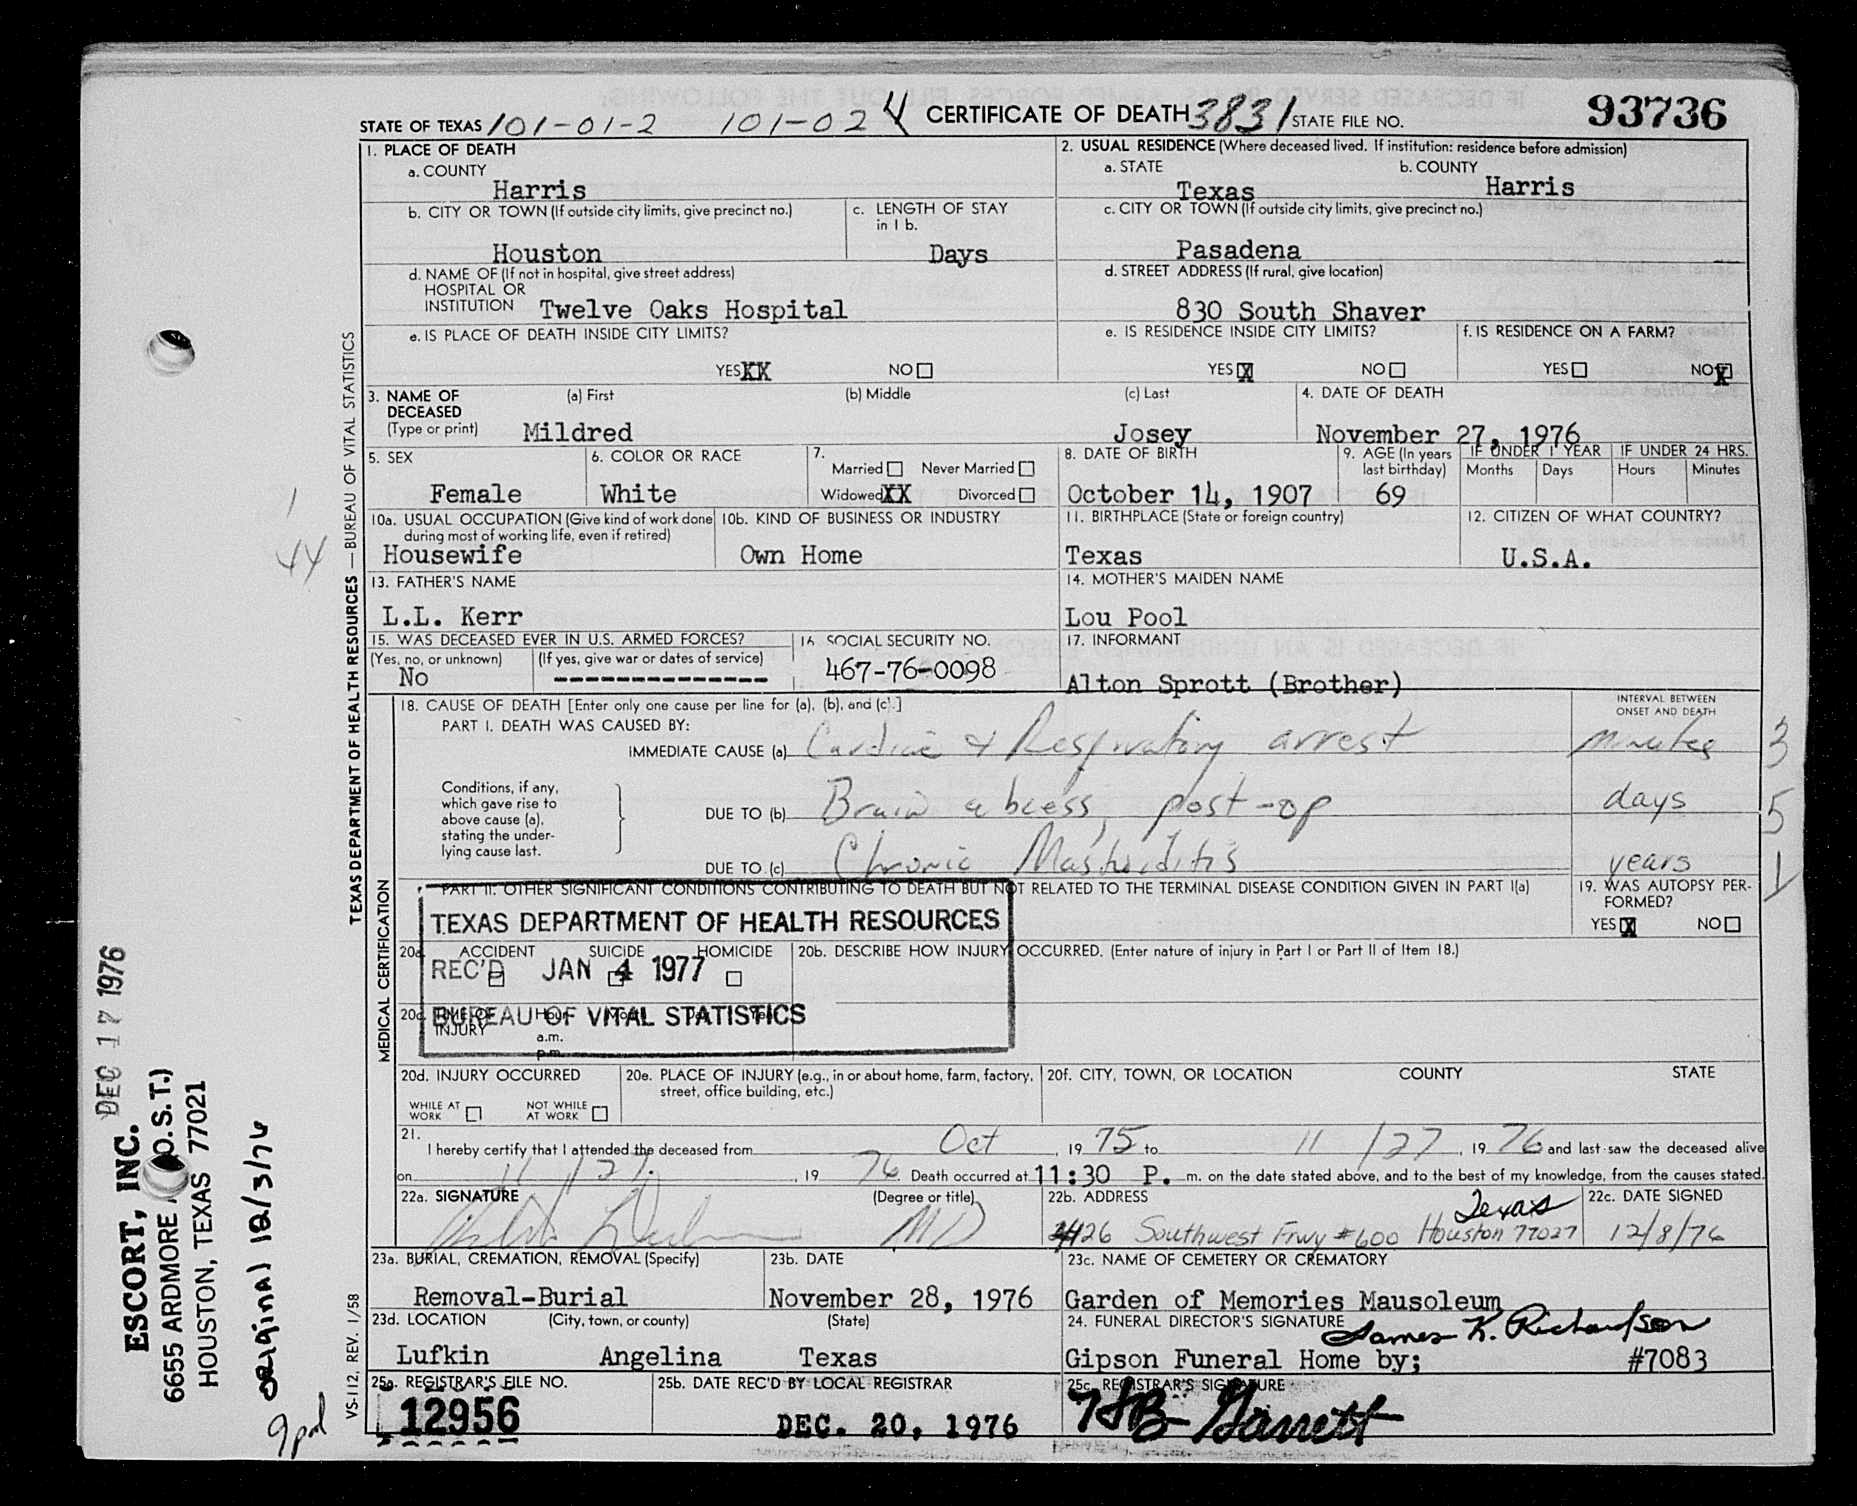 STATE OF TEXAS 101-01-2 101-02 4 CERTIFICATE OF DEATH 3831 STATE FILE NO. 93736
1. PLACE OF DEATH
a. COUNTY
Harris
2. USUAL RESIDENCE (Where deceased lived. If institution: residence before admission)
a. STATE b. COUNTY
Texas Harris
b. CITY OR TOWN (If outside city limits, give precinct no.)
Houston
c. LENGTH OF STAY
in 1 b.
Days
c. CITY OR TOWN (If outside city limits, give precinct no.)
Pasadena
d. NAME OF (If not in hospital, give street address)
HOSPITAL OR
INSTITUTION Twelve Oaks Hospital
d. STREET ADDRESS (If rural, give location)
830 South Shaver
e. IS PLACE OF DEATH INSIDE CITY LIMITS?
YES XX NO
e. IS RESIDENCE INSIDE CITY LIMITS?
YES X NO
f. IS RESIDENCE ON A FARM?
YES NO X
3. NAME OF (a) First (b) Middle (c) Last
DECEASED
(Type or print) Mildred Josey
4. DATE OF DEATH
November 27, 1976
5. SEX
Female
6. COLOR OR RACE
White
7.
Married Never Married
Widowed XX Divorced
8. DATE OF BIRTH
October 14, 1907
9. AGE (In years
last birthday)
69
IF UNDER 1 YEAR
Months Days
IF UNDER 24 HRS.
Hours Minutes
10a. USUAL OCCUPATION (Give kind of work done
during most of working life, even if retired)
Housewife
10b. KIND OF BUSINESS OR INDUSTRY
Own Home
11. BIRTHPLACE (State or foreign country)
Texas
12. CITIZEN OF WHAT COUNTRY?
U.S.A.
13. FATHER'S NAME
L.L. Kerr
14. MOTHER'S MAIDEN NAME
Lou Pool
15. WAS DECEASED EVER IN U.S. ARMED FORCES?
(Yes, no, or unknown) (If yes, give war or dates of service)
No --------------
16. SOCIAL SECURITY NO.
467-76-0098
17. INFORMANT
Alton Sprott (Brother)
18. CAUSE OF DEATH [Enter only one cause per line for (a), (b), and (c).]
INTERVAL BETWEEN
ONSET AND DEATH
PART I. DEATH WAS CAUSED BY:
IMMEDIATE CAUSE (a) Cardiac & Respiratory arrest minutes 3
Conditions, if any,
which gave rise to
above cause (a),
stating the under-
lying cause last.
DUE TO (b) Brain abcess, post-op days 5
DUE TO (c) Chronic Mastoiditis years 1
PART II. OTHER SIGNIFICANT CONDITIONS CONTRIBUTING TO DEATH BUT NOT RELATED TO THE TERMINAL DISEASE CONDITION GIVEN IN PART I(a)
19. WAS AUTOPSY PER-
FORMED?
YES X NO
TEXAS DEPARTMENT OF HEALTH RESOURCES
REC'D JAN 4 1977
BUREAU OF VITAL STATISTICS
20a. ACCIDENT SUICIDE HOMICIDE
20b. DESCRIBE HOW INJURY OCCURRED. (Enter nature of injury in Part I or Part II of Item 18.)
20c. TIME OF Hour Month Day Year
INJURY
a.m.
p.m.
20d. INJURY OCCURRED
WHILE AT
WORK
NOT WHILE
AT WORK
20e. PLACE OF INJURY (e.g., in or about home, farm, factory,
street, office building, etc.)
20f. CITY, TOWN, OR LOCATION COUNTY STATE
21.
I hereby certify that I attended the deceased from Oct , 19 75 to 11/27 , 19 76 and last saw the deceased alive
on 11/27. , 19 76 Death occurred at 11:30 P. m. on the date stated above, and to the best of my knowledge, from the causes stated.
22a. SIGNATURE (Degree or title)
MD
22b. ADDRESS
Texas
26 Southwest Frwy #600 Houston 77027
22c. DATE SIGNED
12/8/76
23a. BURIAL, CREMATION, REMOVAL (Specify)
Removal-Burial
23b. DATE
November 28, 1976
23c. NAME OF CEMETERY OR CREMATORY
Garden of Memories Mausoleum
23d. LOCATION (City, town, or county) (State)
Lufkin Angelina Texas
24. FUNERAL DIRECTOR'S SIGNATURE
James K. Richardson
Gipson Funeral Home by; #7083
25a. REGISTRAR'S FILE NO.
12956
25b. DATE REC'D BY LOCAL REGISTRAR
DEC. 20, 1976
25c. REGISTRAR'S SIGNATURE
Garrett
TEXAS DEPARTMENT OF HEALTH RESOURCES — BUREAU OF VITAL STATISTICS
MEDICAL CERTIFICATION
VS-112, REV. 1/58
1
44
DEC 17 1976
ESCORT, INC.
6655 ARDMORE O.S.T.)
HOUSTON, TEXAS 77021
original 12/3/76